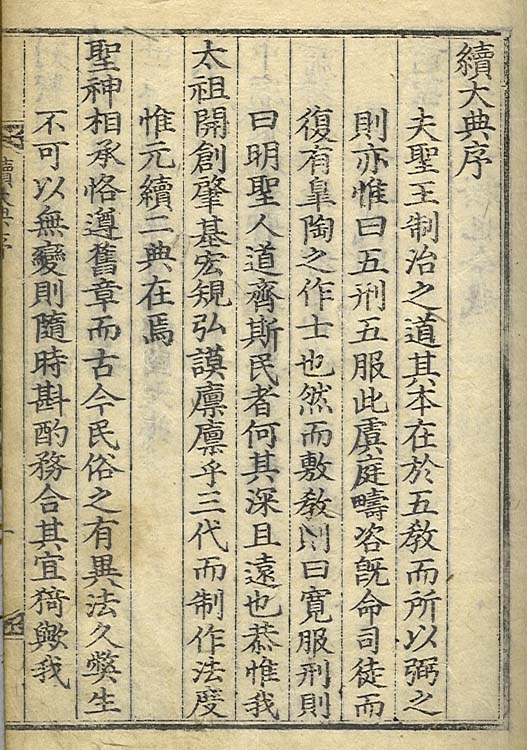 續大典序
夫聖王制治之道其本在於五敎而所以弼之
則亦惟曰五刑五服此虞庭疇咨旣命司徒而
復有皐陶之作士也然而敷敎則曰寬服刑則
曰明聖人道齊斯民者何其深且遠也恭惟我
太祖開創肇基宏規弘謨廩廩乎三代而制作法度
惟元續二典在焉
聖神相承恪遵舊章而古今民俗之有異法久獘生
不可以無變則隨時斟酌務合其宜猗歟我
續大典序